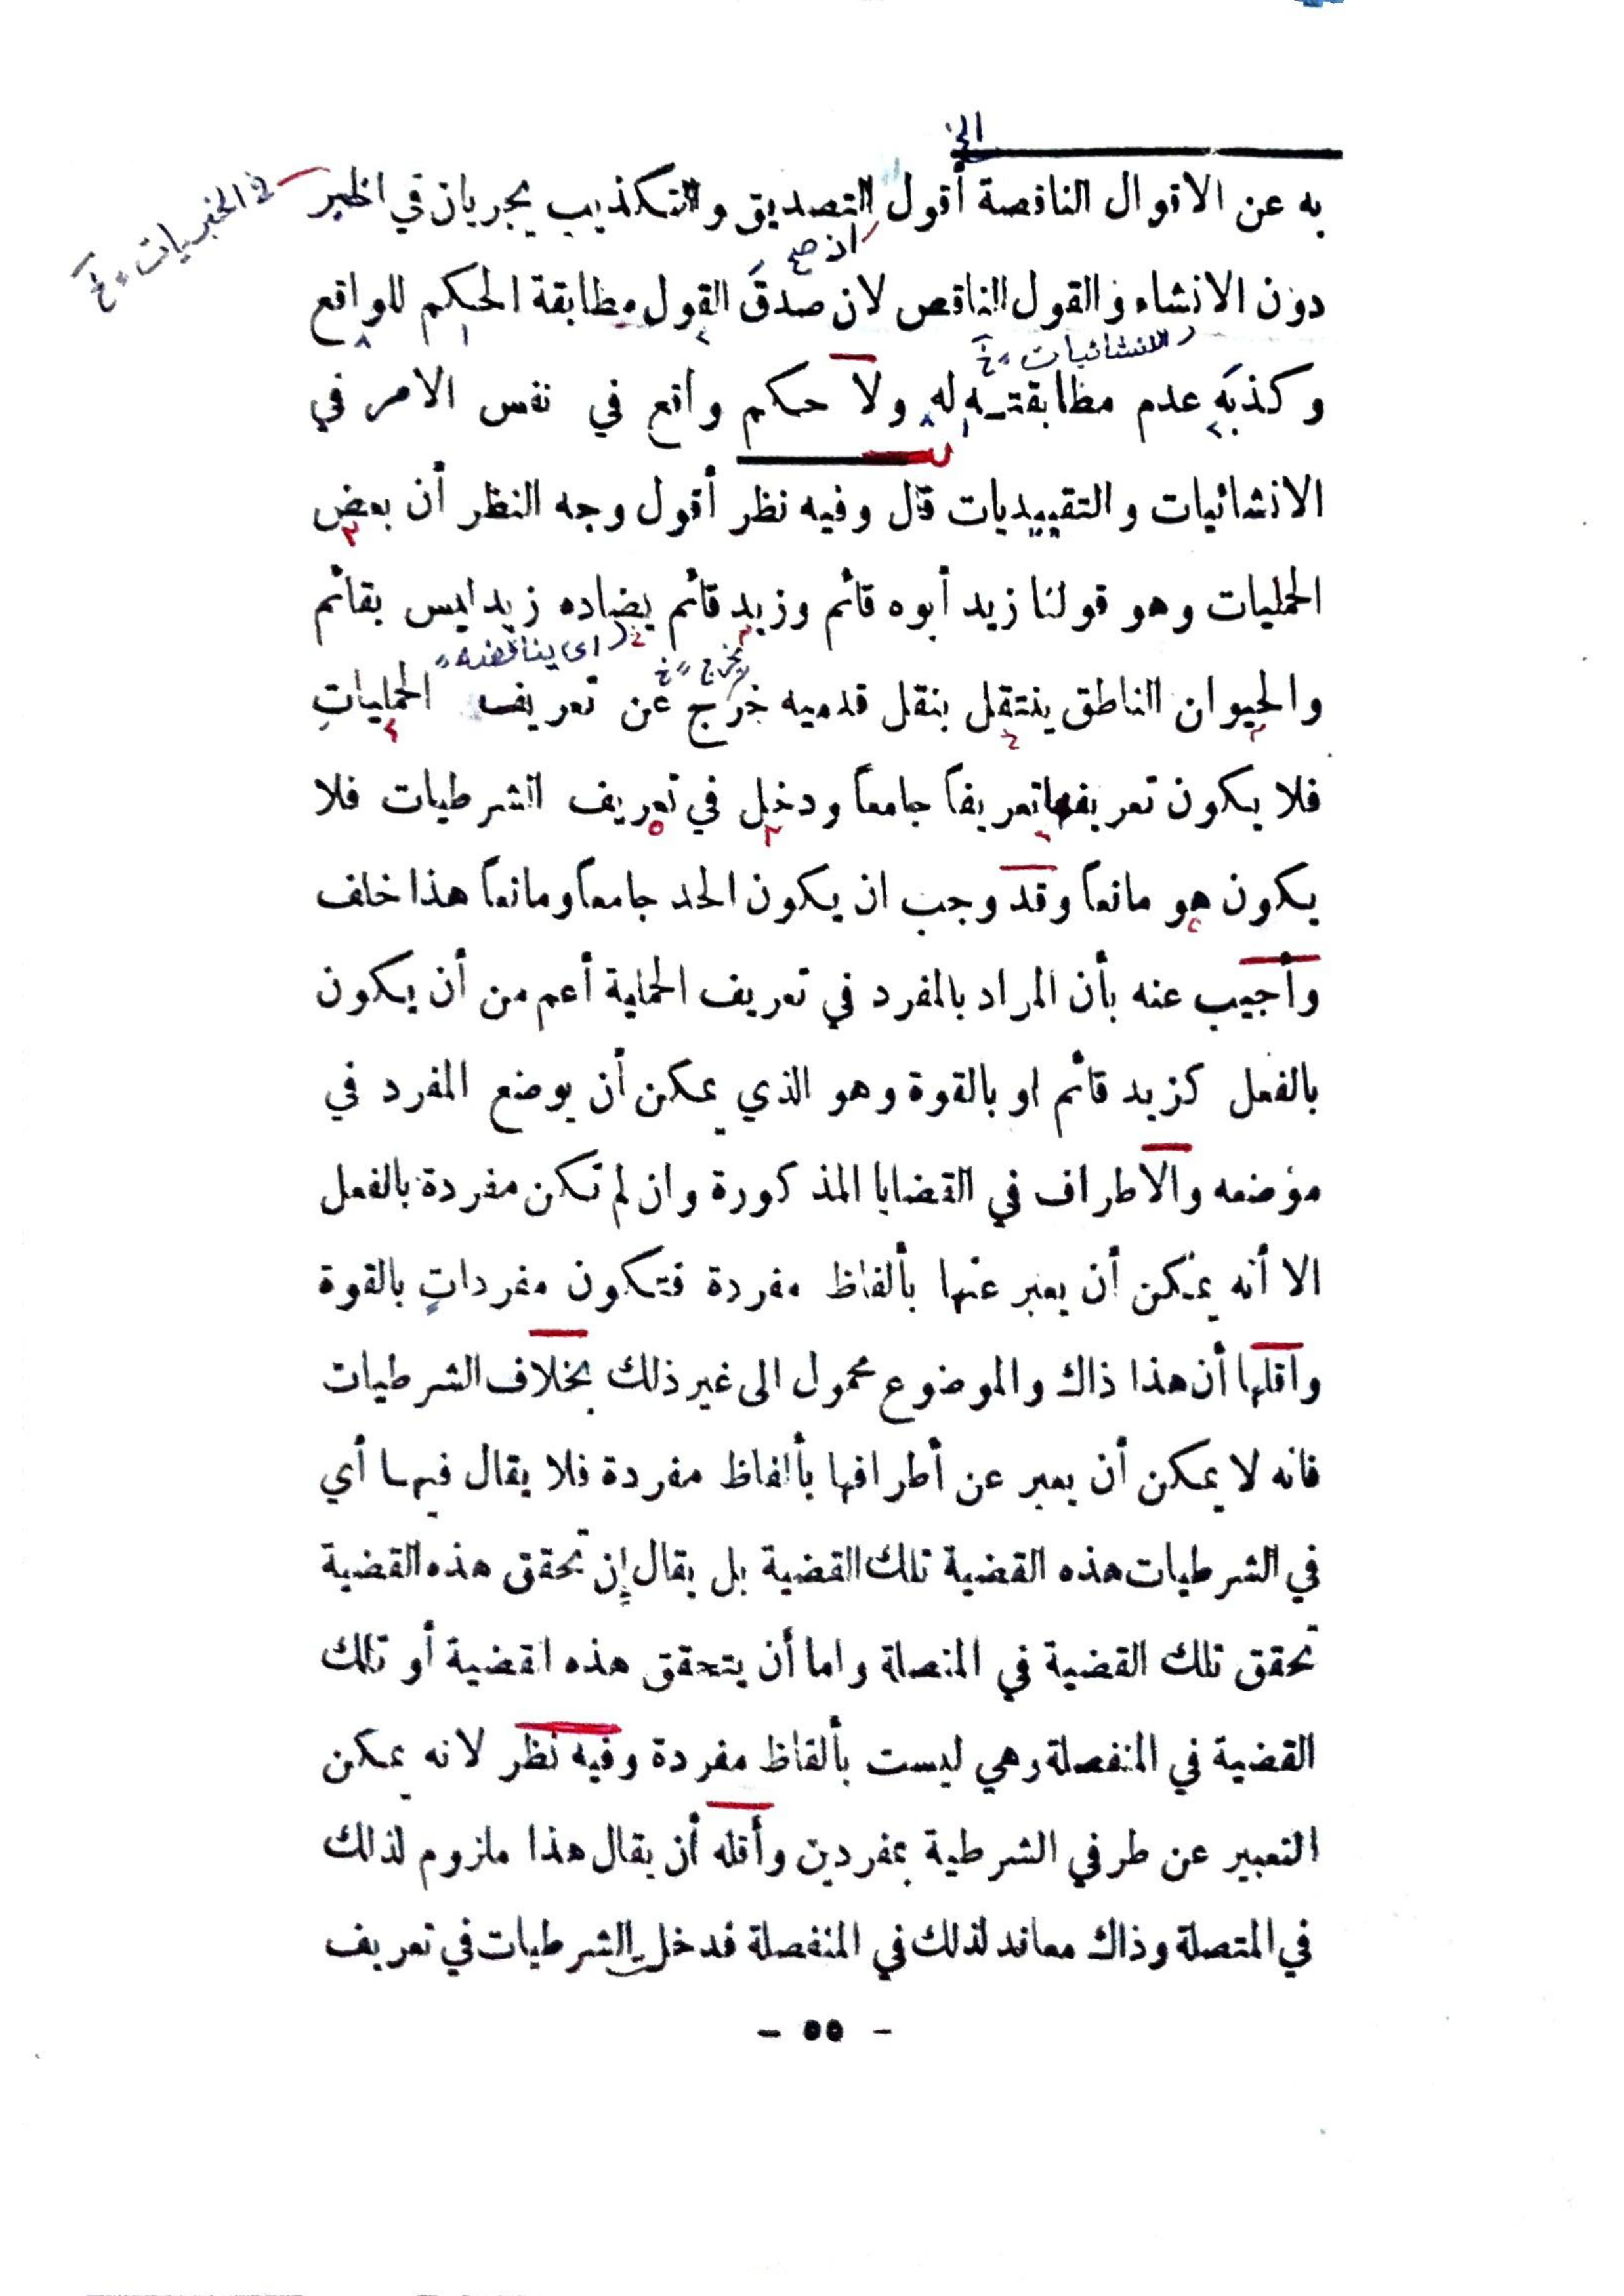 الخ
به عن الاقوال الناقصة أقول التصديق والتكذيب يجريان في الخبر
في الخبريات » خ
ان صح
دون الانشاء والقول الناقص لان صدقَ القول مطابقة الحكم للواقع
الانشائيات » خ
وكذبَه عدم مطابقتـه له ولا حكم واقع في نفس الامر في
الانشائيات والتقييديات قال وفيه نظر أقول وجه النظر أن بعض
الحمليات وهو قولنا زيد أبوه قائم وزيد قائم يضاده زيد ليس بقائم
اى يناقضه »
يخرج » خ
والحيوان الناطق ينتقل بنقل قدميه خرج عن تعريف الحملياتِ
فلا يكون تعريفها تعريفاً جامعاً ودخل في تعريف الشرطيات فلا
يكون هو مانعاً وقد وجب ان يكون الحد جامعاً ومانعاً هذا خلف
وأجيب عنه بأن المراد بالمفرد في تعريف الحملية أعم من أن يكون
بالفعل كزيد قائم او بالقوة وهو الذي يمكن أن يوضع المفرد في
موضعه والاطراف في القضايا المذكورة وان لم تكن مفردة بالفعل
الا أنه يمكن أن يعبر عنها بألفاظ مفردة فتكون مفرداتٍ بالقوة
واقلها أن هذا ذاك والموضوع محمول الى غير ذلك بخلاف الشرطيات
فانه لا يمكن أن يعبر عن أطرافها بألفاظ مفردة فلا يقال فيها أي
في الشرطيات هذه القضية تلك القضية بل يقال إن تحقق هذه القضية
تحقق تلك القضية في المتصلة واما أن يتحقق هذه القضية أو تلك
القضية في المنفصلة وهي ليست بألفاظ مفردة وفيه نظر لانه يمكن
التعبير عن طرفي الشرطية بمفردين وأقله أن يقال هذا ملزوم لذلك
في المتصلة وذاك معاند لذلك في المنفصلة فدخل الشرطيات في تعريف
- ٥٥ -